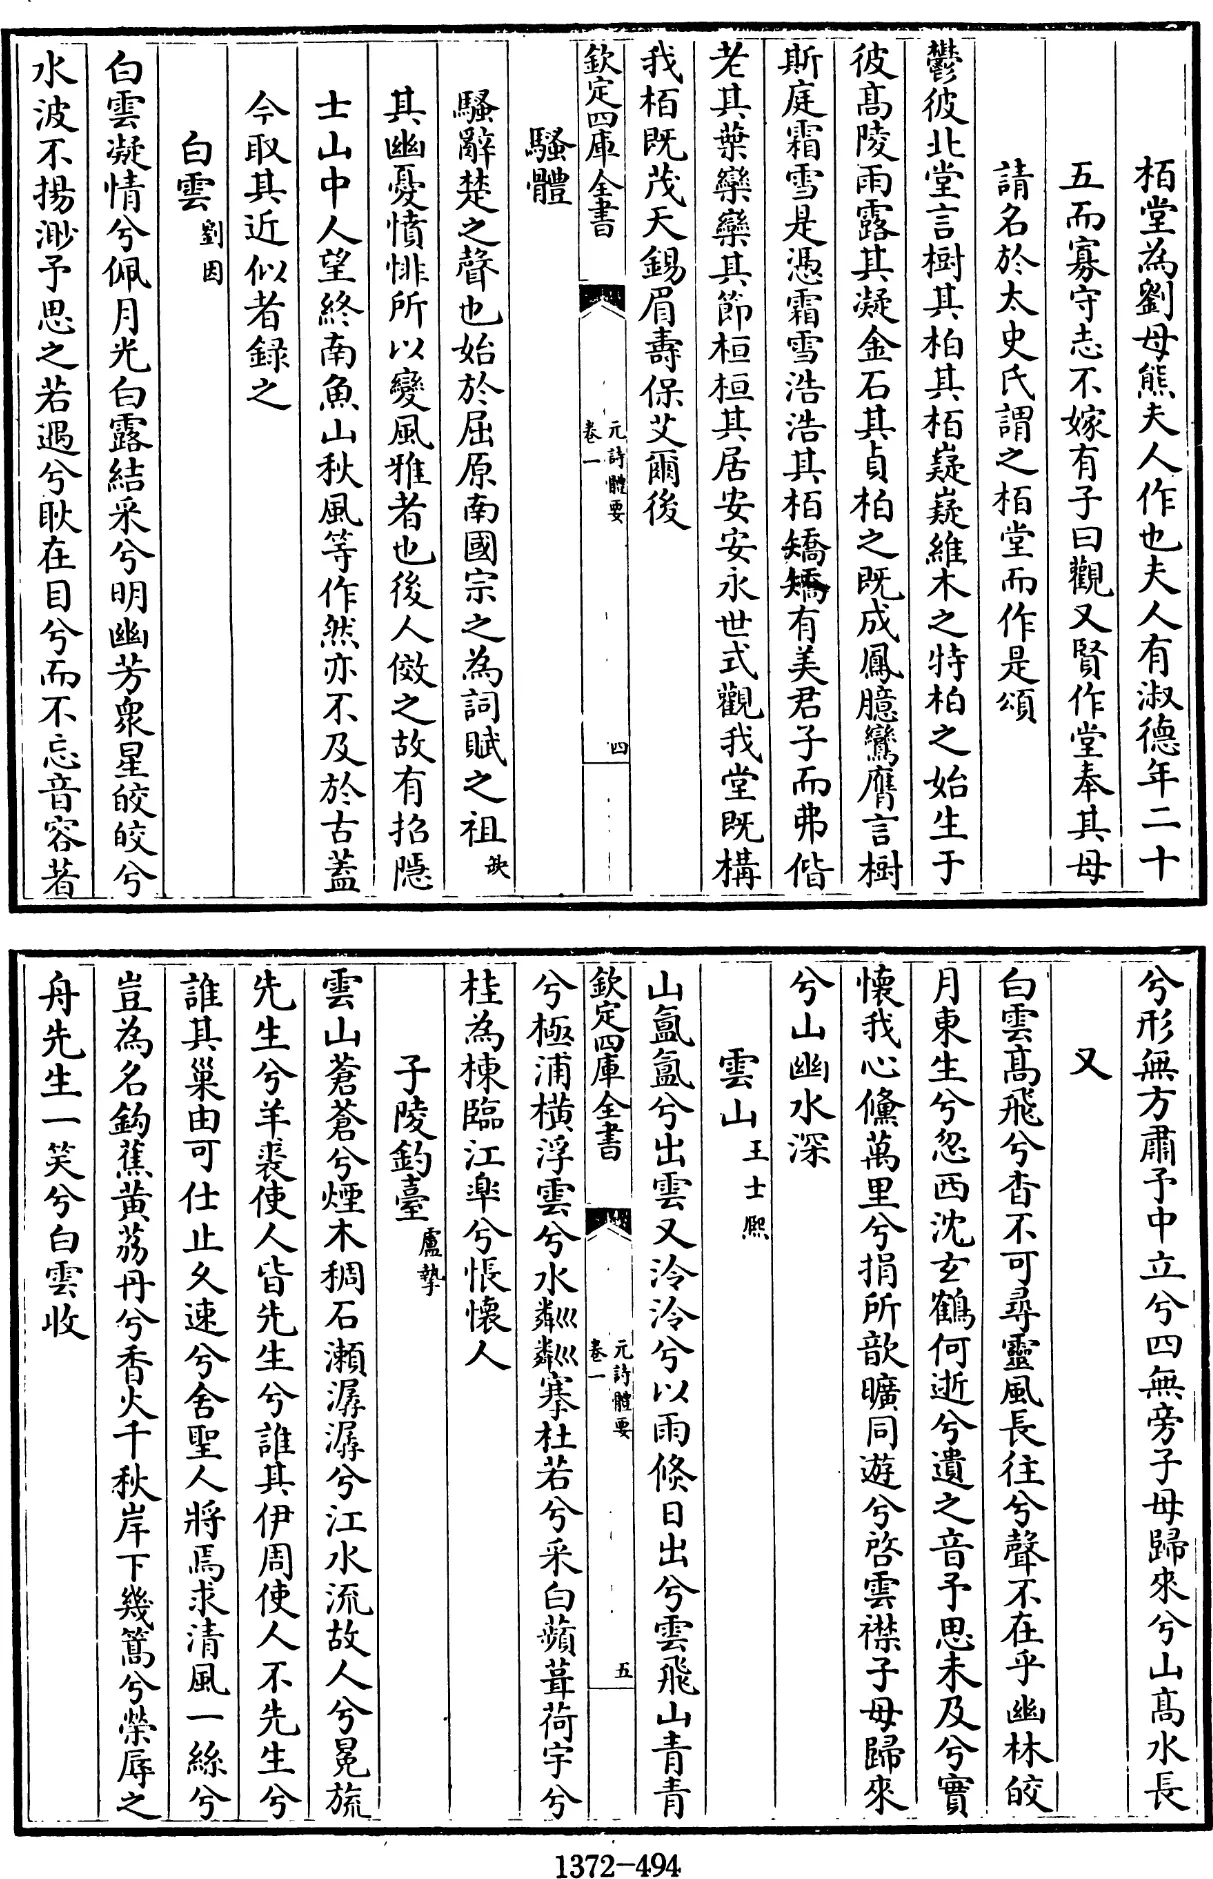 栢堂為劉母熊夫人作也夫人有淑德年二十
五而寡守志不嫁有子曰觀又賢作堂奉其母
請名於太史氏謂之栢堂而作是頌
鬱彼北堂言樹其柏其栢嶷嶷維木之特柏之始生于
彼髙陵雨露其凝金石其貞柏之既成鳳臆鸞膺言樹
斯庭霜雪是憑霜雪浩浩其栢矯矯有美君子而弗偕
老其葉欒欒其節桓桓其居安安永世式觀我堂既構
我栢既茂天錫眉壽保艾爾後
欽定四庫全書
元詩體要
卷一
四
騷體
騷辭楚之聲也始於屈原南國宗之為詞賦之祖缺
其幽憂憤悱所以變風雅者也後人傚之故有招隠
士山中人望終南魚山秋風等作然亦不及於古葢
今取其近似者録之
白雲劉因
白雲凝情兮佩月光白露結采兮明幽芳衆星皎皎兮
水波不揚渺予思之若遇兮耿在目兮而不忘音容著
兮形無方肅予中立兮四無旁子母歸來兮山髙水長
又
白雲髙飛兮杳不可尋靈風長往兮聲不在乎幽林皎
月東生兮忽西沈玄鶴何逝兮遺之音予思未及兮實
懐我心儵萬里兮捐所歆曠同遊兮啓雲襟子母歸來
兮山幽水深
雲山王士熈
山氳氳兮出雲又泠泠兮以雨倐日出兮雲飛山青青
欽定四庫全書
元詩體要
卷一
五
兮極浦横浮雲兮水粼粼搴杜若兮采白蘋葺荷宇兮
桂為棟臨江臯兮悵懐人
子陵釣臺盧摯
雲山蒼蒼兮煙木稠石瀬潺潺兮江水流故人兮冕旒
先生兮羊裘使人皆先生兮誰其伊周使人不先生兮
誰其巢由可仕止乆速兮舍聖人將焉求清風一絲兮
豈為名鈎蕉黄荔丹兮香火千秋岸下幾篙兮榮辱之
舟先生一笑兮白雲收
1372-494